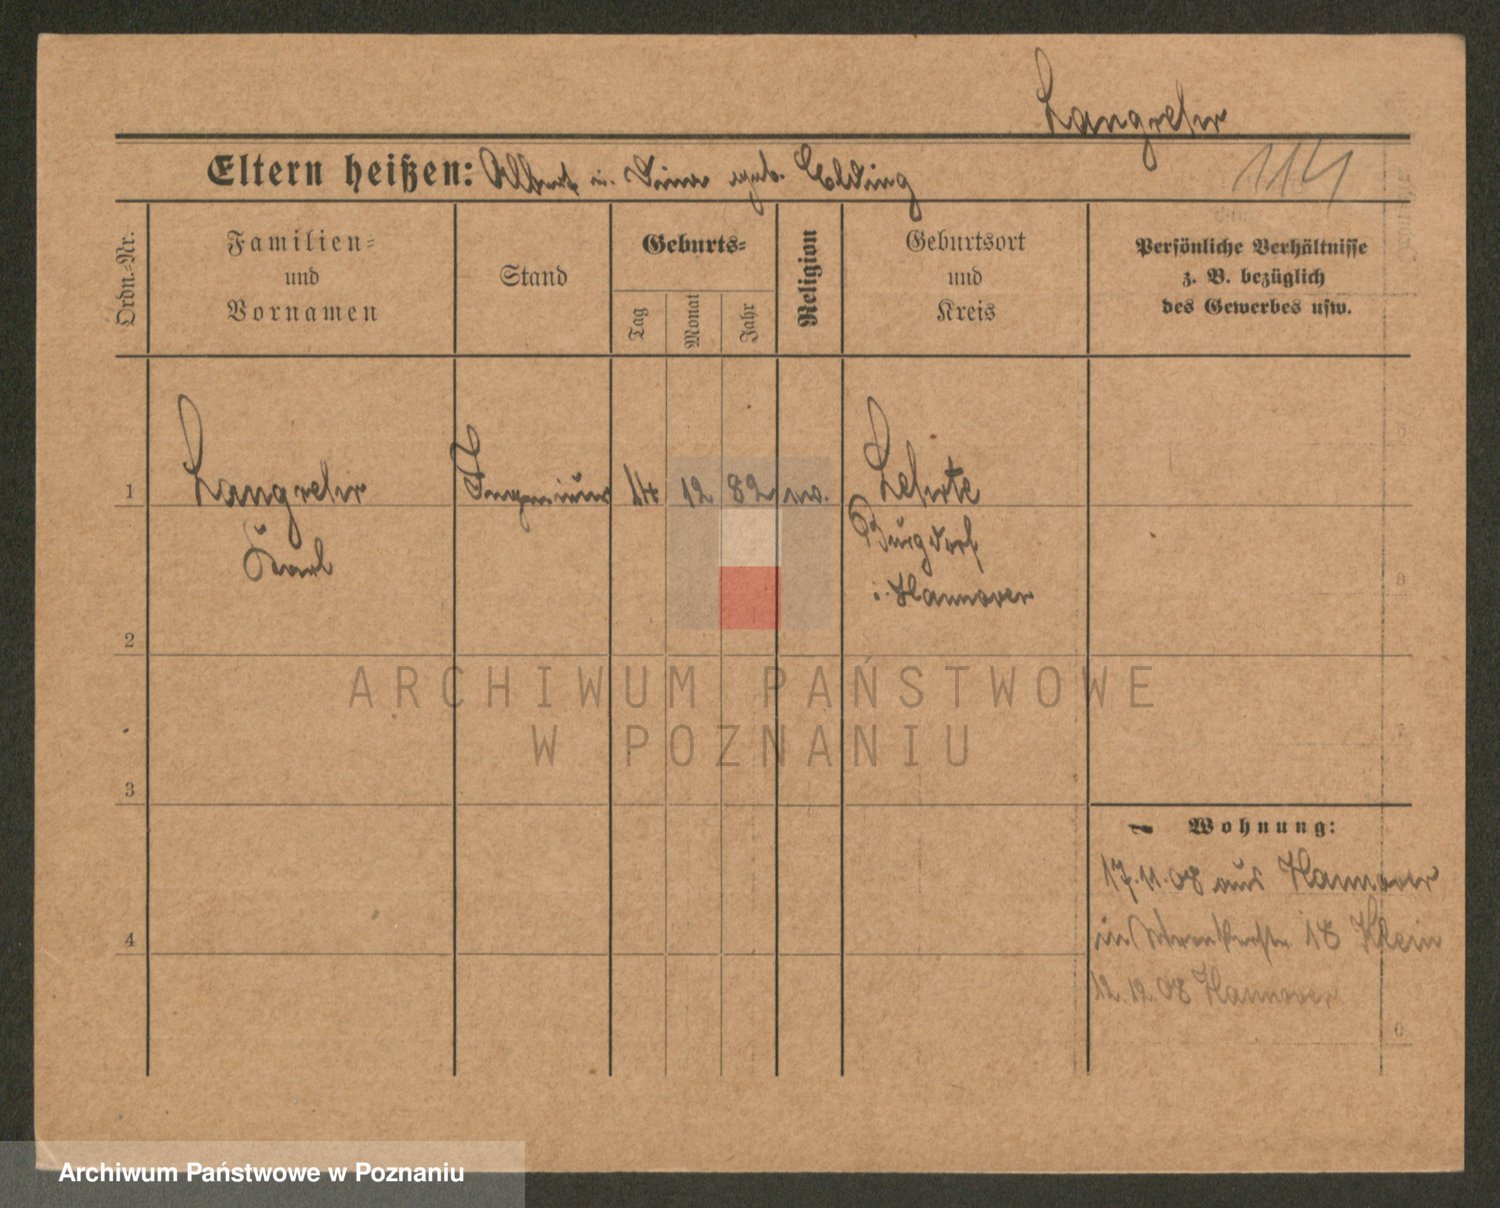 Langrehr
Eltern heißen: Albert u. Dina geb. Elding
114
Ordn.-Nr.
Familien-
und
Vornamen
Stand
Geburts-
Tag
Monat
Jahr
Religion
Geburtsort
und
Kreis
Persönliche Verhältnisse
z. B. bezüglich
des Gewerbes usw.
1
Langrehr
Karl
Ingenieur
14
12
82
Lehrte
Burgdorf
i. Hannover
2
ARCHIWUM PAŃSTWOWE
W POZNANIU
3
Wohnung:
17.11.08 aus Hannover
18 Klein
4
12.12.08 Hannover
Archiwum Państwowe w Poznaniu